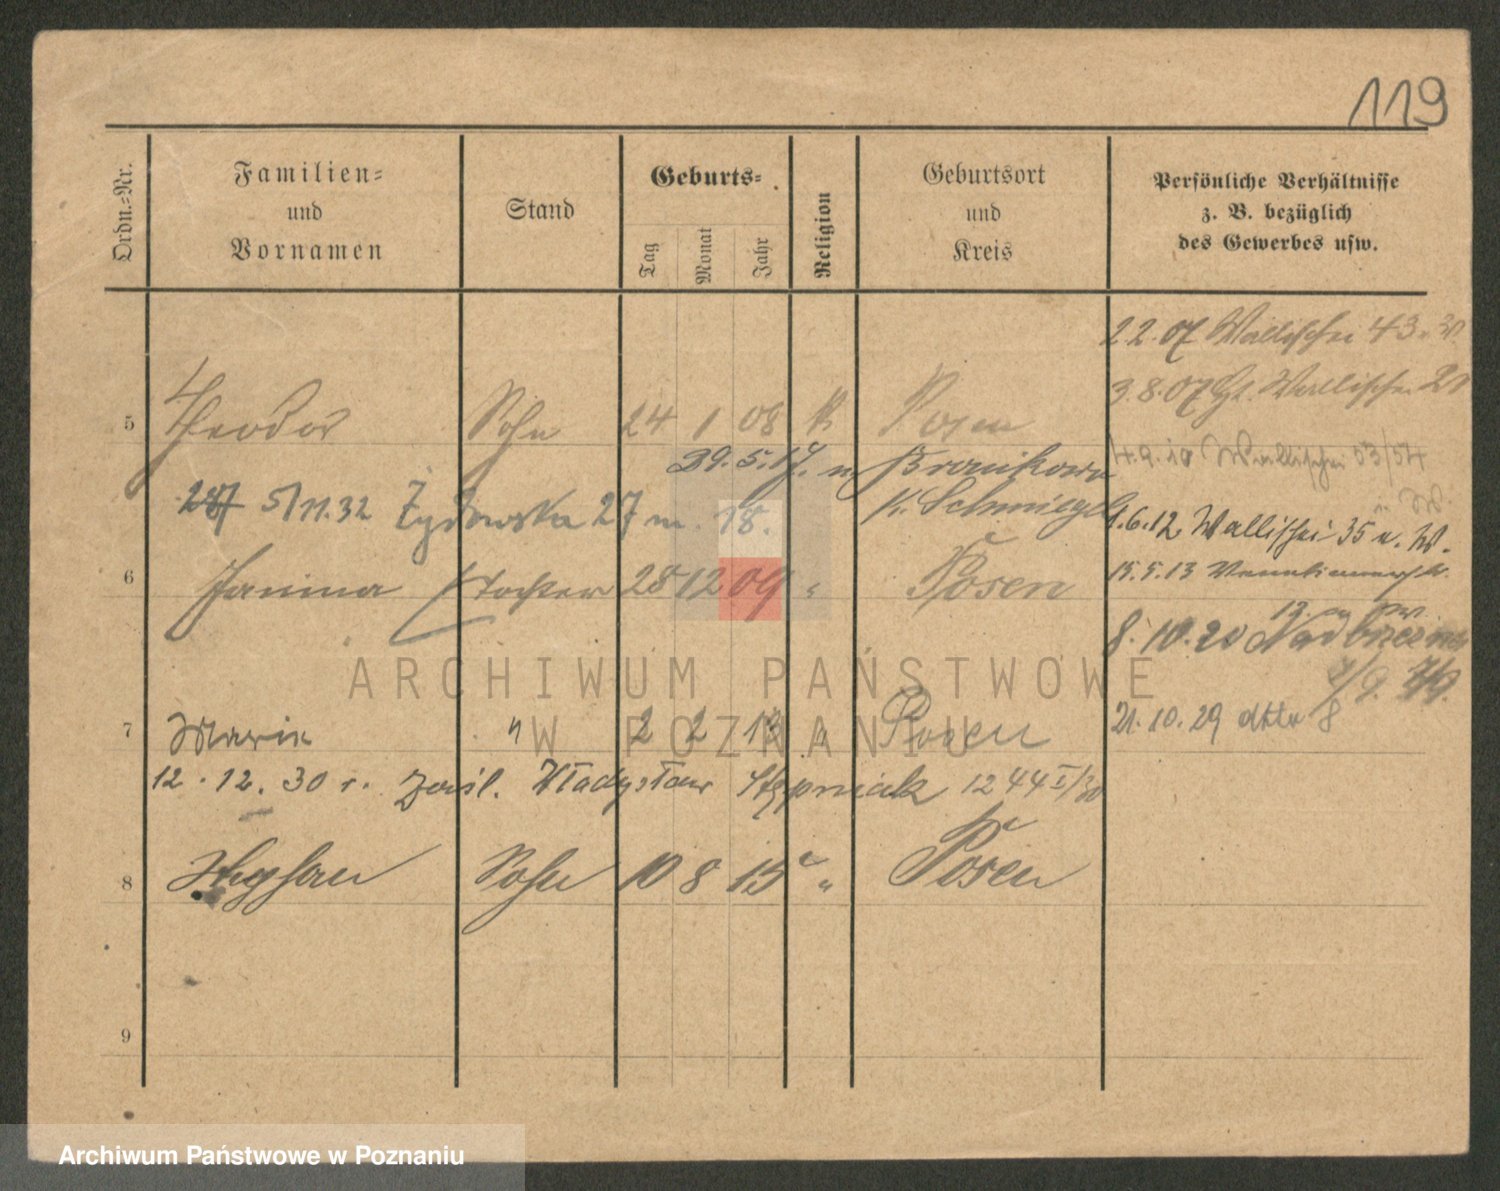 119
Ordn.=Nr.
Familien=
und
Vornamen
Stand
Geburts=
Tag
Monat
Jahr
Religion
Geburtsort
und
Kreis
Persönliche Verhältnisse
z. B. bezüglich
des Gewerbes usw.
2.2.07 Wallischei 43
3.8.07 Wallischei
5 Theodor Sohn 24 1 08 K Posen
4.9.10 Wallischei 53/54
29.5.17. n Bronikowo
K. Schmiegel
5/11.32 Żydowska 27 m. 18.
4.6.12 Wallischei 35 n. W.
6 Janina Tochter 28 12 09 " Posen
15.5.13
8.10.20
7 Maria " 2 2 13 " Posen
21.10.29 dtto 8
12.12.30 r. zaśl. Władysław Stępniak 1244 I/30
8 Sohn 10 8 15 " Posen
9
ARCHIWUM PAŃSTWOWE
W POZNANIU
Archiwum Państwowe w Poznaniu